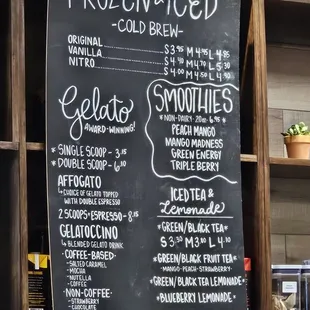 FROZEN & ICED
-COLD BREW-
ORIGINAL
VANILLA
NITRO
Gelato
AWARD-WINNING!
* SINGLE SCOOP - 3.15
* DOUBLE SCOOP - 6.10
AFFOGATO
↳ CHOICE OF GELATO TOPPED
WITH DOUBLE ESPRESSO
2 SCOOPS + ESPRESSO - 8.15
GELATOCCINO
↳ BLENDED GELATO DRINK
- COFFEE-BASED
- SALTED CARAMEL
- MOCHA
- NUTELLA
- COFFEE
- NON-COFFEE
- STRAWBERRY
- CHOCOLATE
SMOOTHIES
* NON-DAIRY - 20oz - 6.95 *
PEACH MANGO
MANGO MADNESS
GREEN ENERGY
TRIPLE BERRY
ICED TEA &
Lemonade
*GREEN/BLACK TEA*
S 3.30 M 3.80 L 4.10
*GREEN/BLACK FRUIT TEA*
-MANGO-PEACH-STRAWBERRY-
*GREEN/BLACK TEA LEMONADE*
*BLUEBERRY LEMONADE*